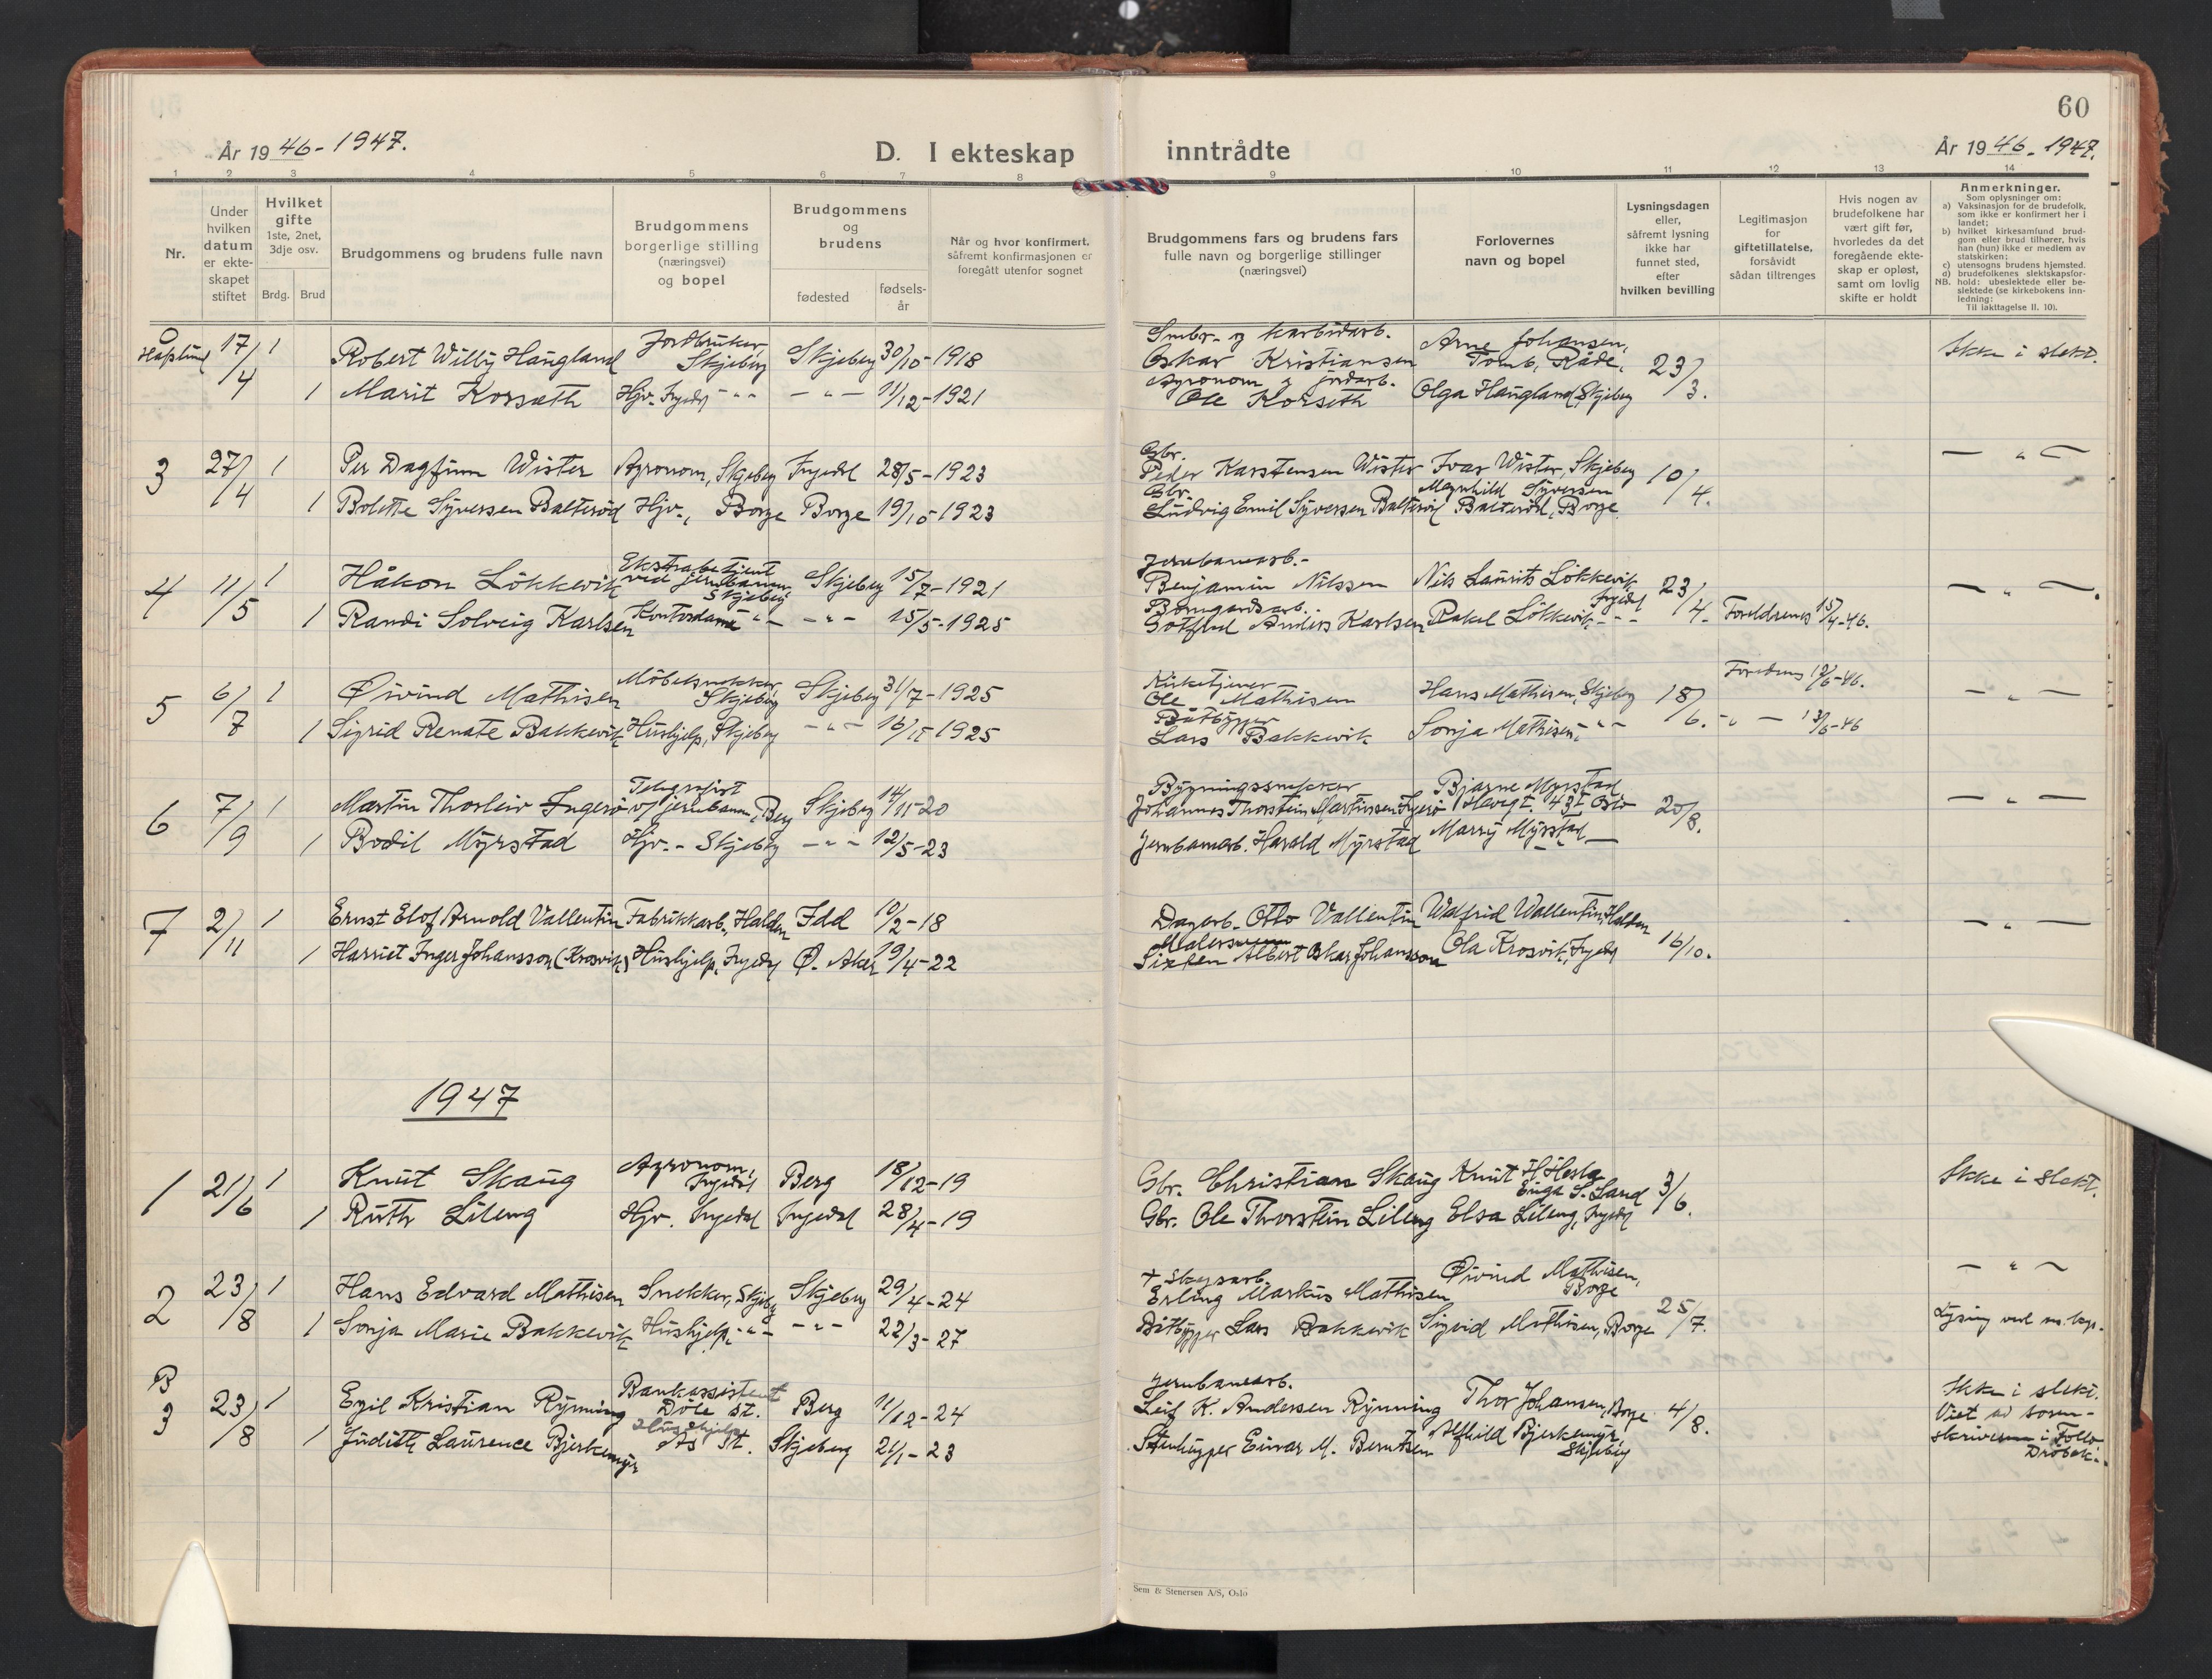 60
År 1946-1947.
D. I ekteskap inntrådte
År 1946-1947.
1 2 3 4 5 6 7 8 9 10 11 12 13 14
Nr.
Under hvilken datum er ekteskapet stiftet
Hvilket gifte 1ste, 2net, 3dje osv.
Brdg. Brud
Brudgommens og brudens fulle navn
Brudgommens borgerlige stilling (næringsvei) og bopel
Brudgommens og brudens
fødested
fødselsår
Når og hvor konfirmert, såfremt konfirmasjonen er foregått utenfor sognet
Brudgommens fars og brudens fars fulle navn og borgerlige stillinger (næringsvei)
Forlovernes navn og bopel
Lysningsdagen eller, såfremt lysning ikke har funnet sted, efter hvilken bevilling
Legitimasjon for giftetillatelse, forsåvidt sådan tiltrenges
Hvis nogen av brudefolkene har vært gift før, hvorledes da det foregående ekteskap er opløst, samt om lovlig skifte er holdt
Anmerkninger.
Som oplysninger om:
a) Vaksinasjon for de brudefolk, som ikke er konfirmert her i landet;
b) hvilket kirkesamfund brudgom eller brud tilhører, hvis han (hun) ikke er medlem av statskirken;
c) utensogns brudens hjemsted.
d) brudefolkenes slektskapsforhold: ubeslektede eller beslektede (se kirkebokens innledning:
NB.
Til iakttagelse II. 10).
17/4 1 Robert Willy Haugland Jordbruker, Skjeberg Skjeberg 30/10-1918 Smbr. og karbidarb. Oskar Kristiansen Arne Johansen, Tomb, Råde, 23/3. Ikke i slekt.
1 Marit Korsæth Hjv. Ingedal -"- -"- 11/12-1921 Agronom og jordarb. Ole Korseth Olga Haugland, Skjeberg
3 27/4 1 Per Dagfinn Wister Agronom, Skjeberg Ingedal 28/5-1923 Gbr. Peder Karstensen Wister Ivar Wister, Skjeberg 10/4. -"-
1 Bolette Syversen Balterød Hjv., Borge Borge 19/10-1923 Gbr. Ludvig Emil Syversen Balterød Magnhild Syversen Balterød, Borge
4 11/5 1 Håkon Lökkevik Ekstrabetjent ved jernbanen Skjeberg Skjeberg 15/7-1921 Jernbanearb.- Benjamin Nilssen Nils Laurits Lökkevik Ingedal 23/4. -"-
1 Randi Solveig Karlsen Kontordame -"- -"- 15/5-1925 Bomgardsarb. Gotfred Anders Karlsen Rakel Lökkevik -"- Foreldrenes 15/4-46.
5 6/7 1 Øivind Mathisen Möbelsnekker, Skjeberg Skjeberg 31/7-1925 Kirketjener Ole Mathisen Hans Mathisen, Skjeberg 18/6. Foreldrenes 12/6-46. -"-
1 Sigrid Renate Bakkevik Hushjelp, Skjeberg -"- 16/11 1925 Båtbygger Lars Bakkevik Sonja Mathisen, -"- -"- 13/6-46
6 7/9 1 Martin Thorleiv Ingerö Telegrafist v/ jernbanen, Berg Skjeberg 14/11-20 Bygningssnekker Johannes Thorstein Martinssen Ingerö Bjarne Myrstad 43 I Oslo 20/8. -"-
1 Bodil Myrstad Hjv. - Skjeberg -"- 12/5-23 Jernbanearb. Harald Myrstad Marry Myrstad -"-
7 2/11 1 Ernst Elof Arnold Vallentin Fabrikkarb., Halden Idd 10/2-18 Dagarb. Otto Vallentin Walfrid Wallentin, Halden 16/10. -"-
1 Harriet Inger Johansson (Krosvik) Hushjelp, Ingedal Ø. Aker 19/4-22 Sixten Albert Oskar Johansson Ola Krosvik, Ingedal
1947
1 21/6 1 Knut Skaug Agronom, Ingedal Berg 18/12-19 Gbr. Christian Skaug Knut H. 3/6. Ikke i slekt.
1 Ruth Lileng Hjv. Ingedal Ingedal 28/4-19 Gbr. Ole Thorstein Lileng Elsa Lileng, Ingedal
2 23/8 1 Hans Edvard Mathisen Snekker, Skjeberg Skjeberg 29/4-24 + Skogsarb. Erling Markus Mathisen Øivind Mathisen, Borge 25/7. -"-
1 Sonja Marie Bakkevik Hushjelp, -"- -"- 22/3-27 Båtbygger Lars Bakkevik Sigrid Mathisen, Borge Lysing ved
B
3 23/8 1 Egil Kristian Rynning Bankassistent Döle st. Berg 11/12-24 Jernbanearb. Leif K. Andersen Rynning Thor Johansen, Borge 4/8. Ikke i slekt.
1 Judith Laurence Bjerkemyr Hushjelp Ås St. Skjeberg 21/1-23 Stenhugger Einar M. Berntsen Alfhild Bjerkemyr, Skjeberg Viet av sorenskriveren i Follo Dröbak.
Sem & Stenersen A/S, Oslo